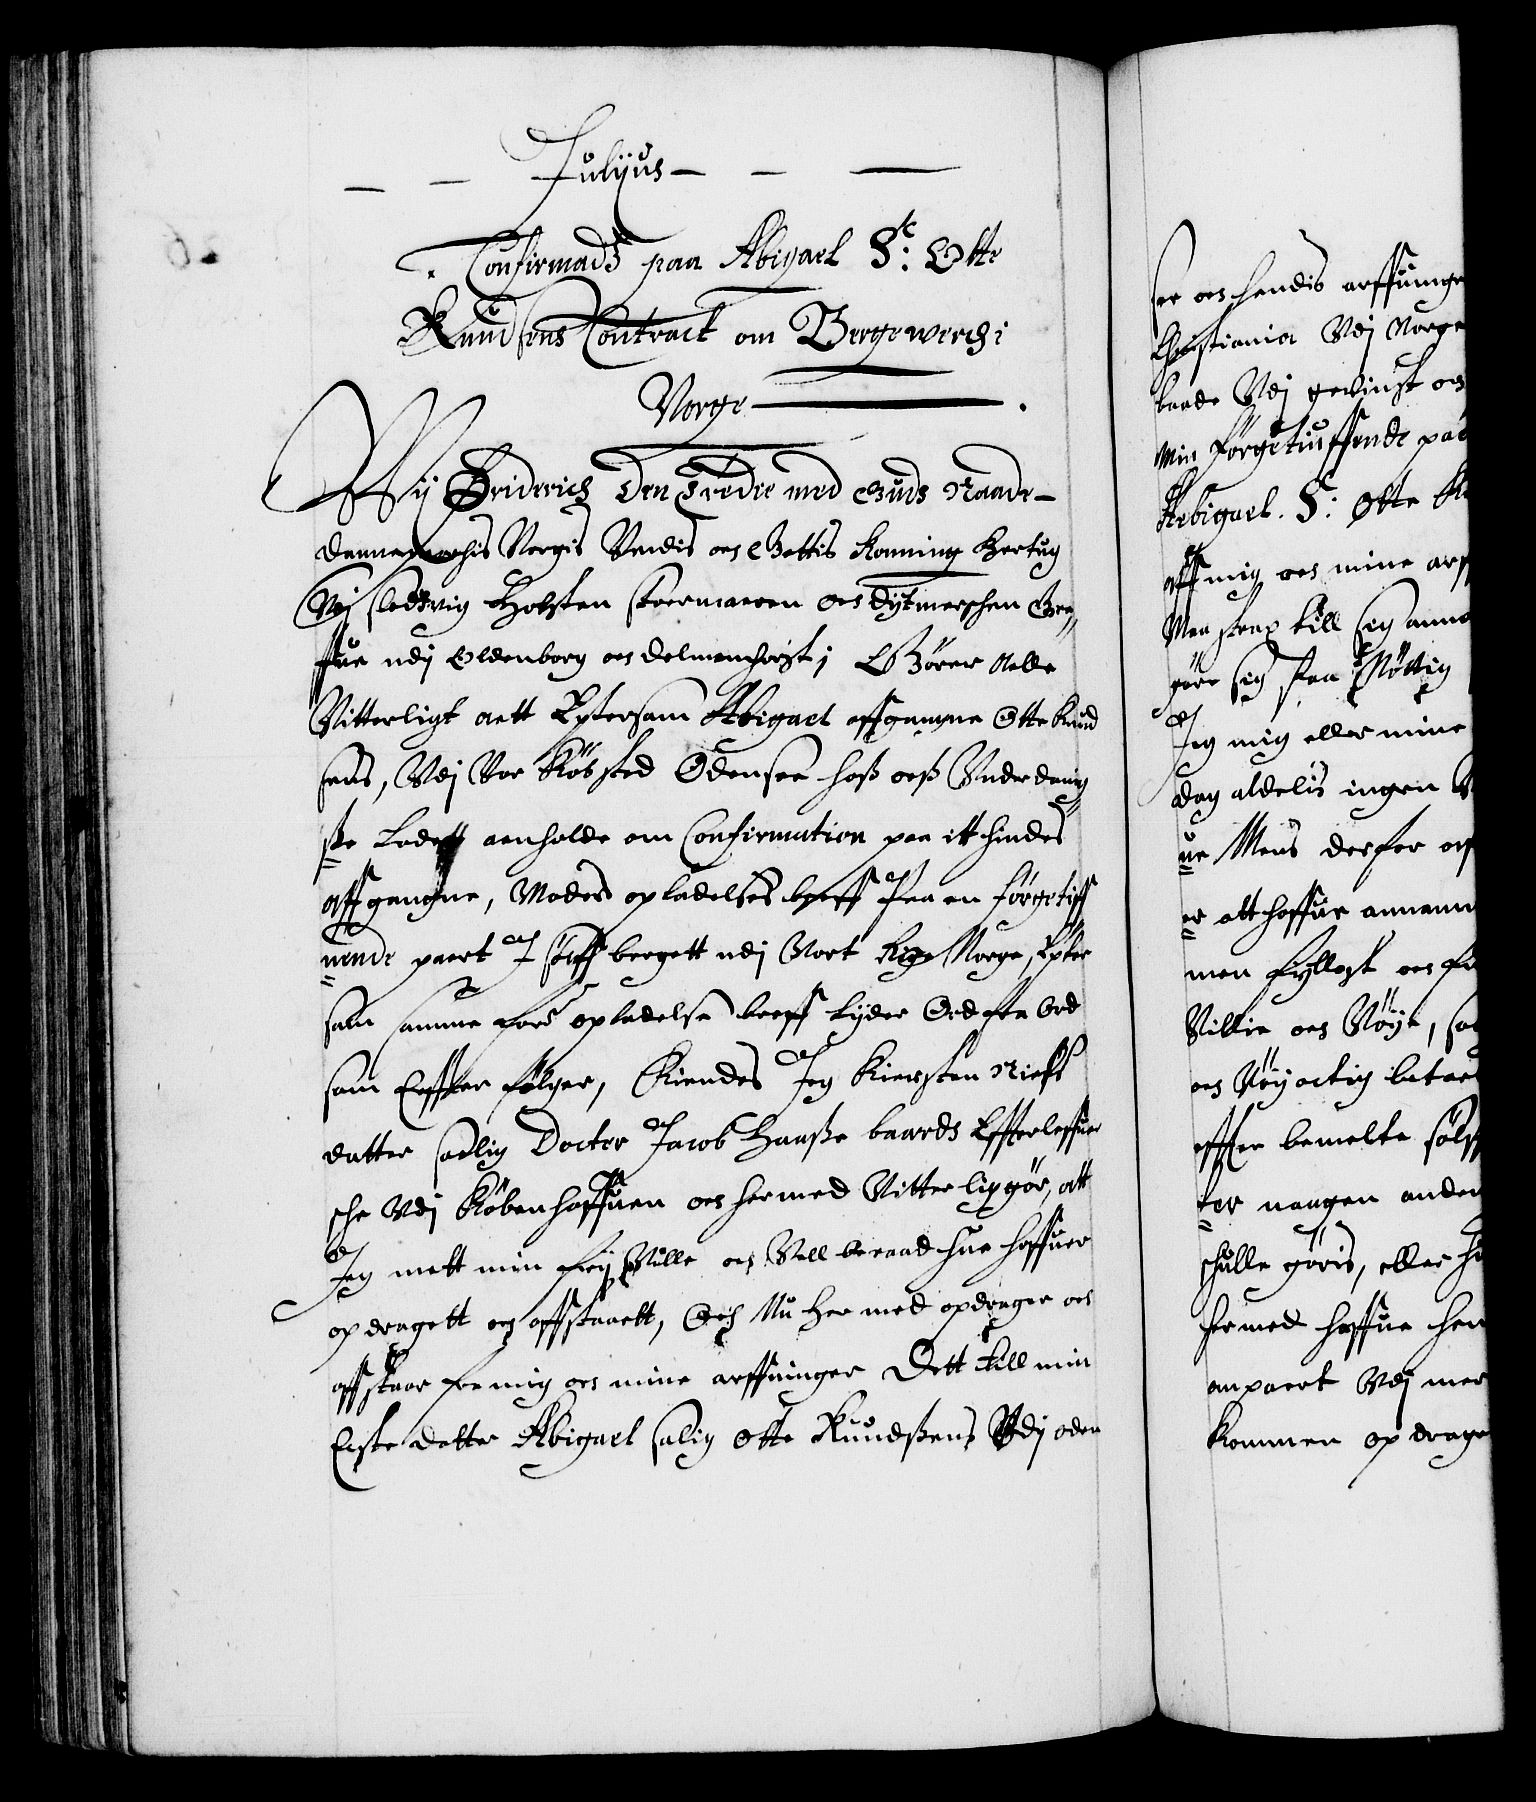 Julÿus
Confirmads paa Abigael S: Otte
Knudsens Contract om Bergewerch i
Norge
Wij Friderich Den Tredie med Guds Naade
Dannemarchis Norgis Vendis och Gottis Konning Hertug
Udj Sleswig Holsten Stormarren och Dytmerschen Gre
ffue udj Oldenborg och Delmenhorst; Giører Alle
Vitterligt att Eptersom Abigael affgangne Otte Knud
sens, Udj Vor Kiøbsted Odensee hoss oess Underdanig
ste Ladet aenholde om Confirmation paa itt hindes
affgangne, Moders opladelses breff Paa en førgetiff
uende paert I sølff berget udj Vort Rige Norge, Epter
som samme for: opladelse breff lyder Ord fra Ord
som Eeffter følger, Kiendes Jeg Kiersten Niels
datter salig Docter Jacob Haasse baards Effterleffuer
sche Udj Kiøbenhaffuen och hermed Vitterligt giør, att
Jeg mett min frij Ville och Vell beraad hue haffuer
opdragett och affstaaett, Och Nu Her med opdrager och
affstaar fra mig och mine arffuinger Dett till min
kierste datter Abigael salig Otte Knudssens Udj oden
see och hendis arffuinge
Christiania Udj Norge
baade Udj gevinst och
min førgetiuffende paa
Abigael S: Otte K
aff mig och mine arf
till sig anna
gøre sig saa Nøttig
Jeg mig eller mine
dag aldelis ingen
ue Mens derfor
er att haffue annam
men fyllest och
Villie och Nøye, saa
och Nøyactig betae
effter bemelte sølff
ter naagen anden
schulle gøris, eller
hermed haffue hen
anpaert Udj mer
kommen opdrage